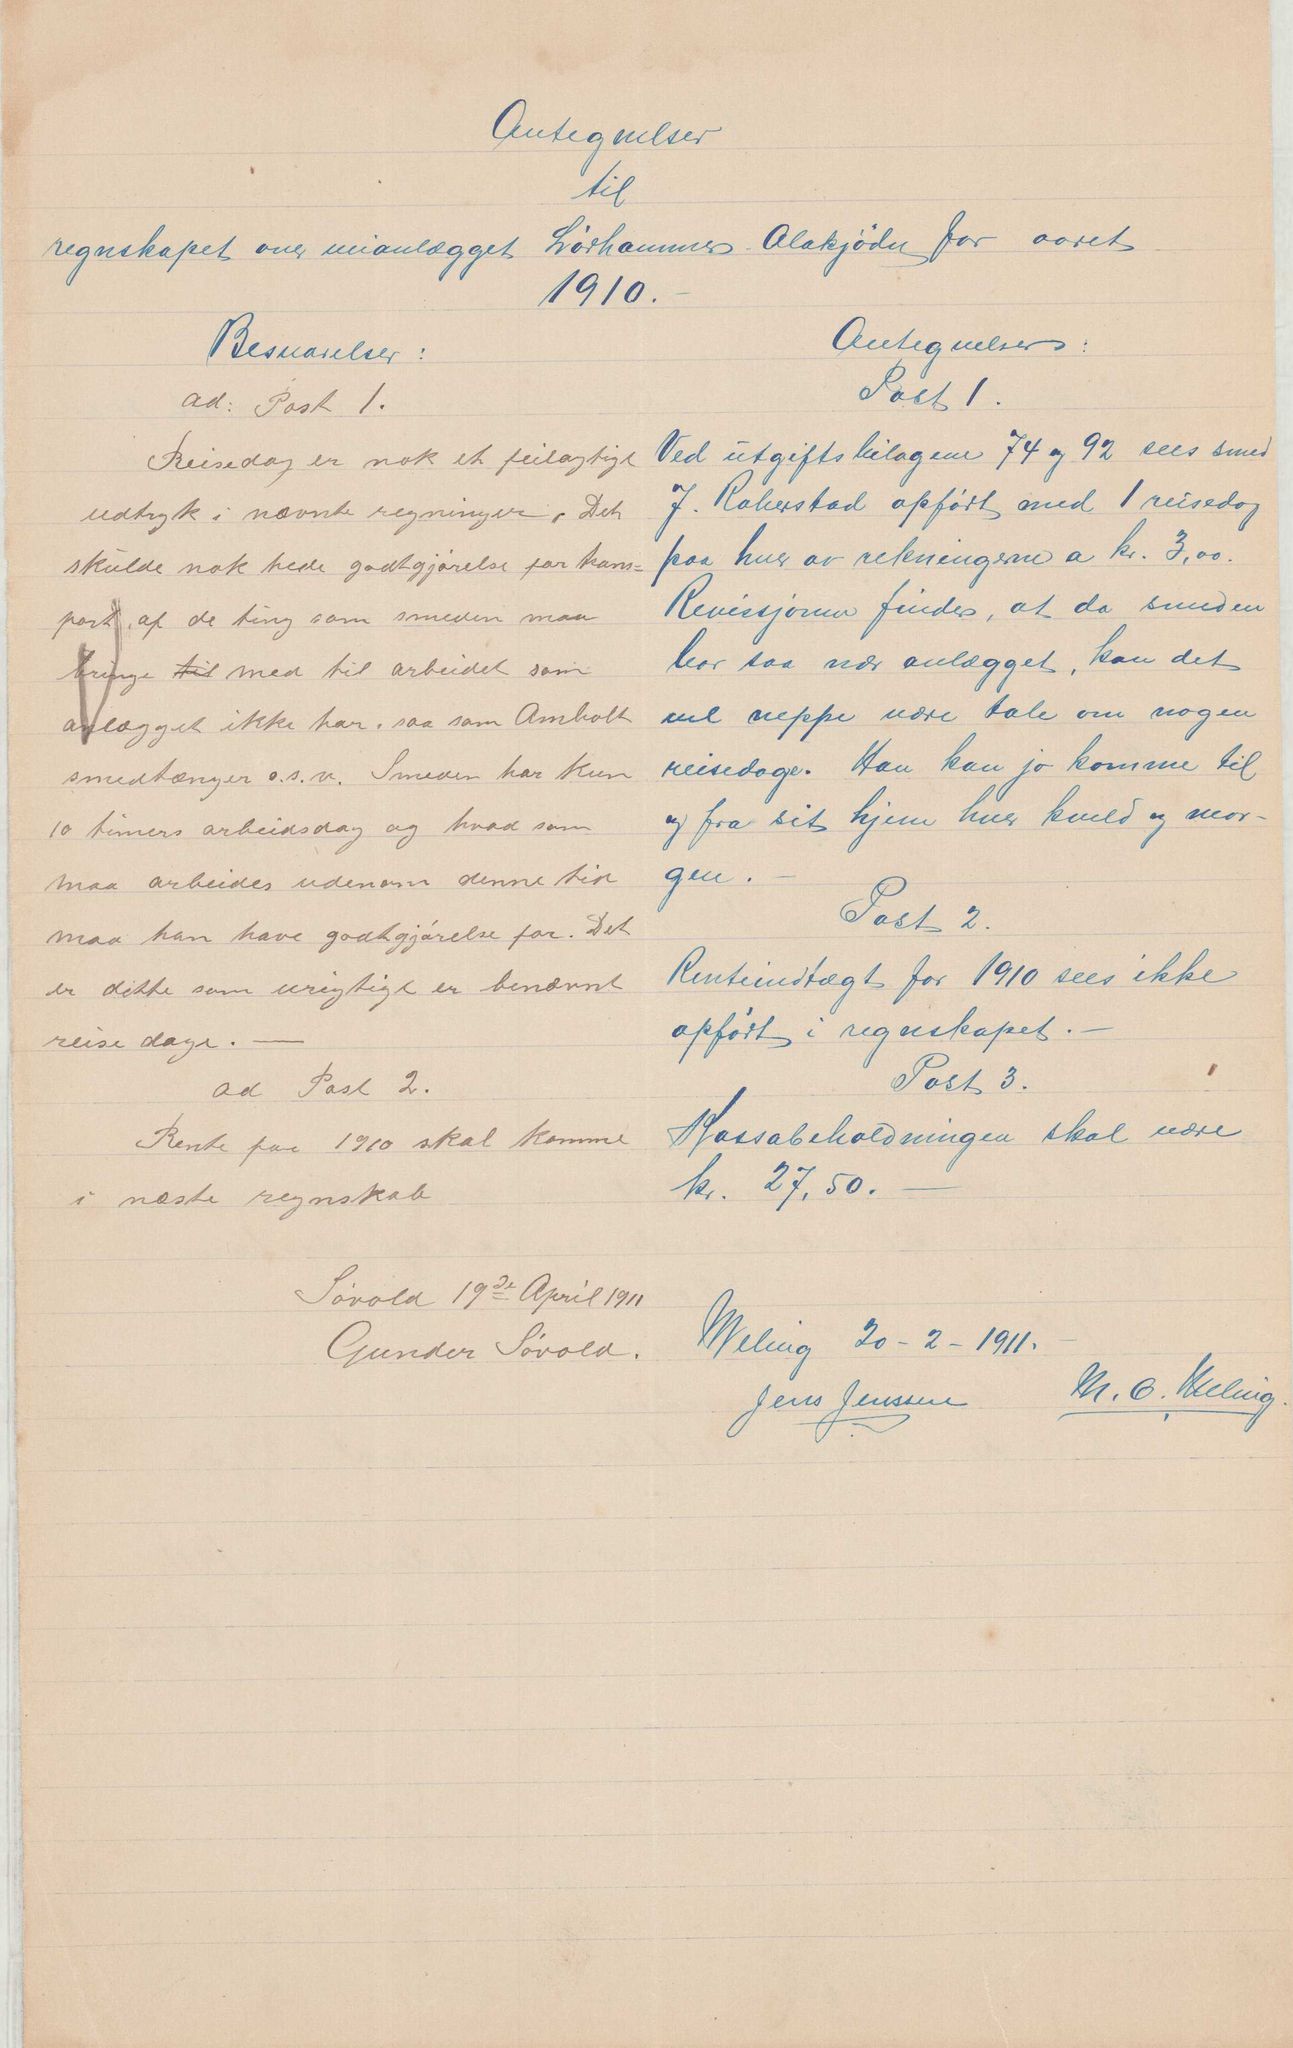 Antegnelser
til
regnskapet over veianlægget Lörhammer Alakjödn for aaret
1910.-
Besvarelser:
ad: Post 1.
Reisedag er nok et feilagtigt
udtryk i nævnte regninger, Det
skulde nok hede godtgjörelse for trans=
port af de ting som smeden maa
bringe til med til arbeidet som
anlægget ikke har. saa som Ambolt
smedtænger o.s.v. Smeden har kun
10 timers arbeidsdag og hvad som
maa arbeides udenom denne tid
maa han have godtgjörelse for. Det
er dette som urigtigt er benævnt
reise dage. —
ad Post 2.
Rente for 1910 skal komme
i næste regnskab
Sövold 19de April 1911
Gunder Sövold.
Antegnelser:
Post 1.
Ved utgiftsbilagene 74 og 92 sees smed
J. Rakerstad opfört med 1 reisedag
paa hver av rekningerne a kr. 3,00.
Revissjonen finder, at da smeden
bor saa nær anlægget, kan det
vel neppe være tale om nogen
reisedage. Han kan jo komme til
og fra sit hjem hver kveld og mor-
gen. -
Post 2.
Renteindtægt for 1910 sees ikke
opfört i regnskapet. -
Post 3.
Kassabeholdningen skal være
kr. 27,50. —
Meling 20-2-1911.
Jens Jenssen M. O. Meling.